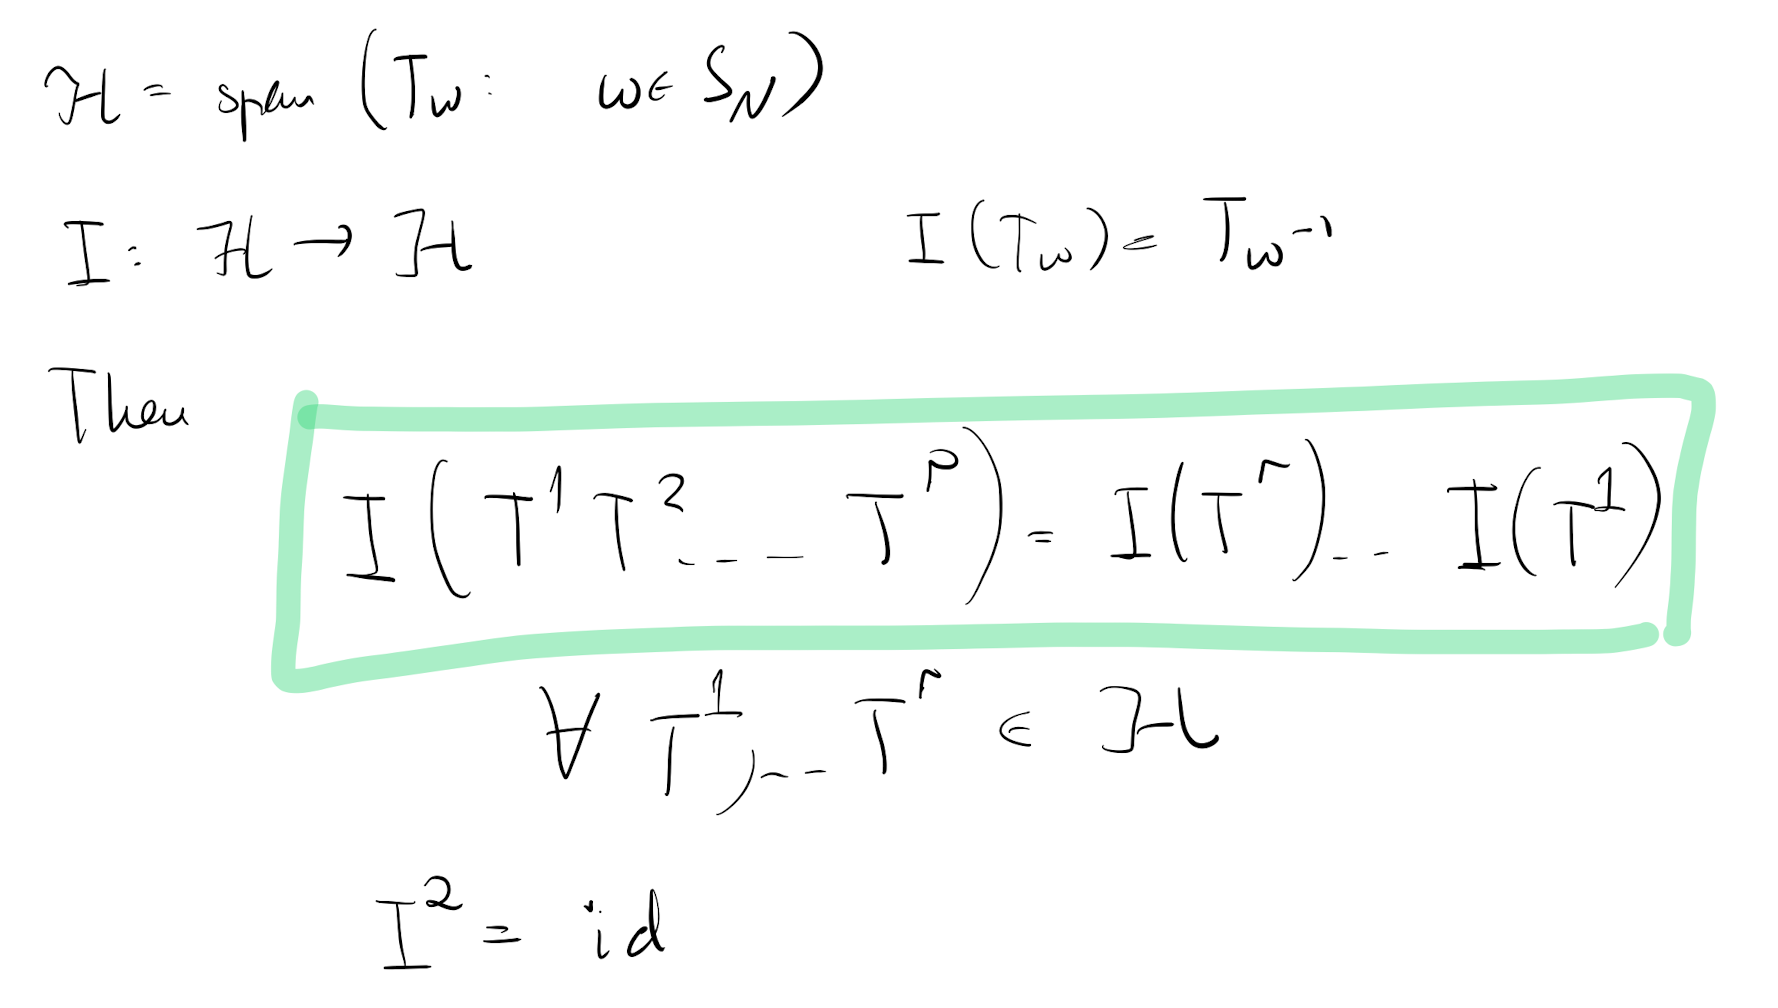 ℋ = span (T_w : w ∈ S_N)
I : ℋ → ℋ I(T_w) = T_{w^{-1}}
Then
I(T^1 T^2 ... T^r) = I(T^r) ... I(T^1)
∀ T^1, ... T^r ∈ ℋ
I^2 = id